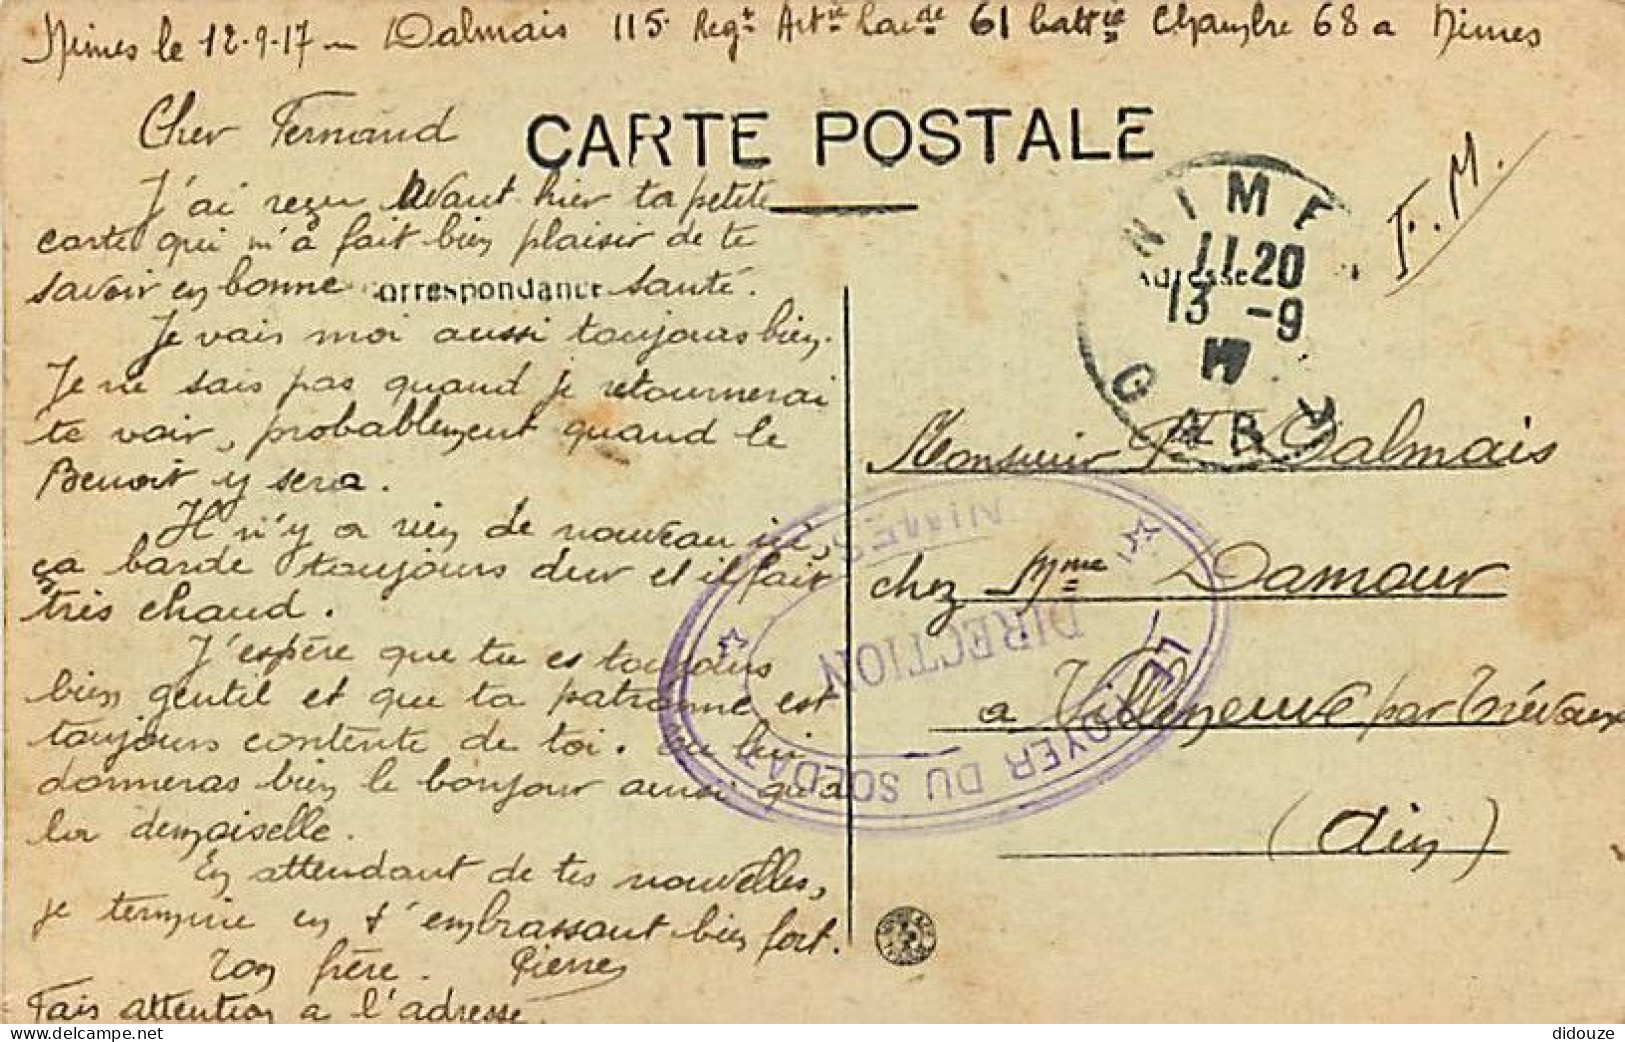 Nimes le 12-9-17 - Dalmais 115 Regt Artie Lourde 61 battie Chambre 68 a Nimes
CARTE POSTALE
F.M.
Cher Fernand
J'ai reçu Avant hier ta petite
carte qui m'a fait bien plaisir de te
savoir en bonne santé.
Correspondance
Je vais moi aussi toujours bien.
Je ne sais pas quand je retournerai
te voir, probablement quand le
Benoit y sera.
Il n'y a rien de nouveau ici,
ça barde toujours dur et il fait
très chaud.
J'espère que tu es toujours
bien gentil et que ta patronne est
toujours contente de toi. Tu lui
donneras bien le bonjour ainsi qu'a
la demoiselle.
En attendant de tes nouvelles,
je termine en t'embrassant bien fort.
Ton frère. Pierre
Fais attention a l'adresse.
NIMES
11 20
13 -9
17
GARD
Adresse
Monsieur Fd Dalmais
chez Mme Damour
a Villeneuve par Trévoux
(Ain)
NIMES
DIRECTION
LE FOYER DU SOLDAT
didouze